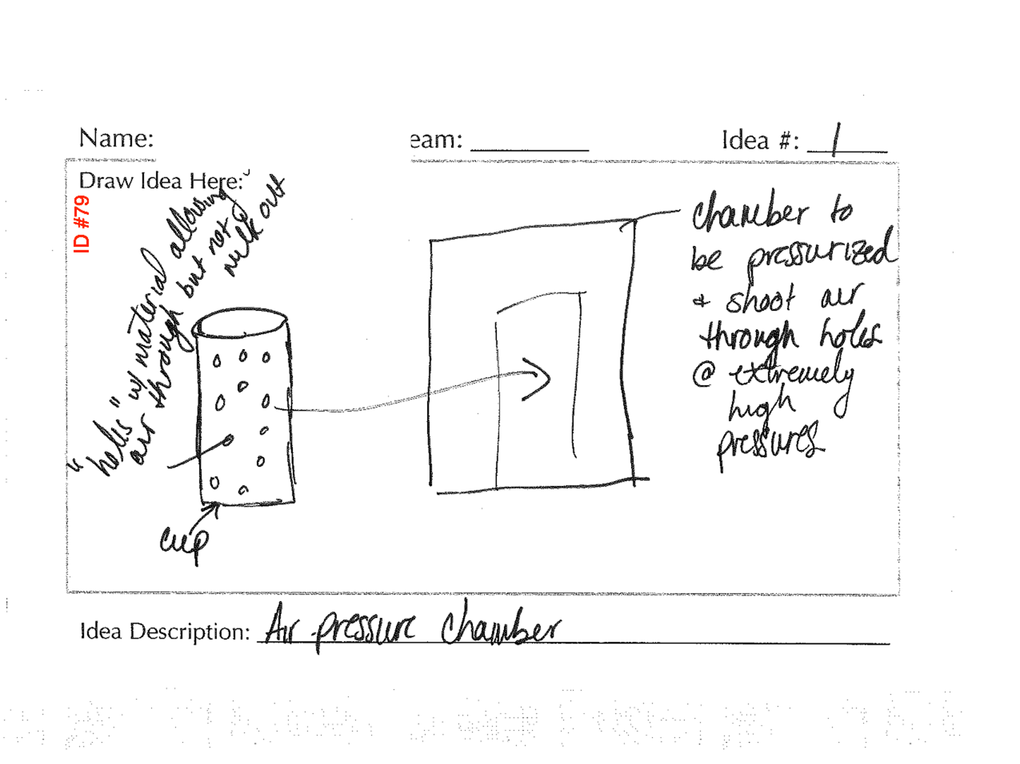 Name:
eam:
Idea #: 1
Draw Idea Here:
ID #79
"holes" w/ material allowing
air through but not
milk out
chamber to
be pressurized
+ shoot air
through holes
@ extremely
high
pressures
cup
Idea Description: Air pressure chamber